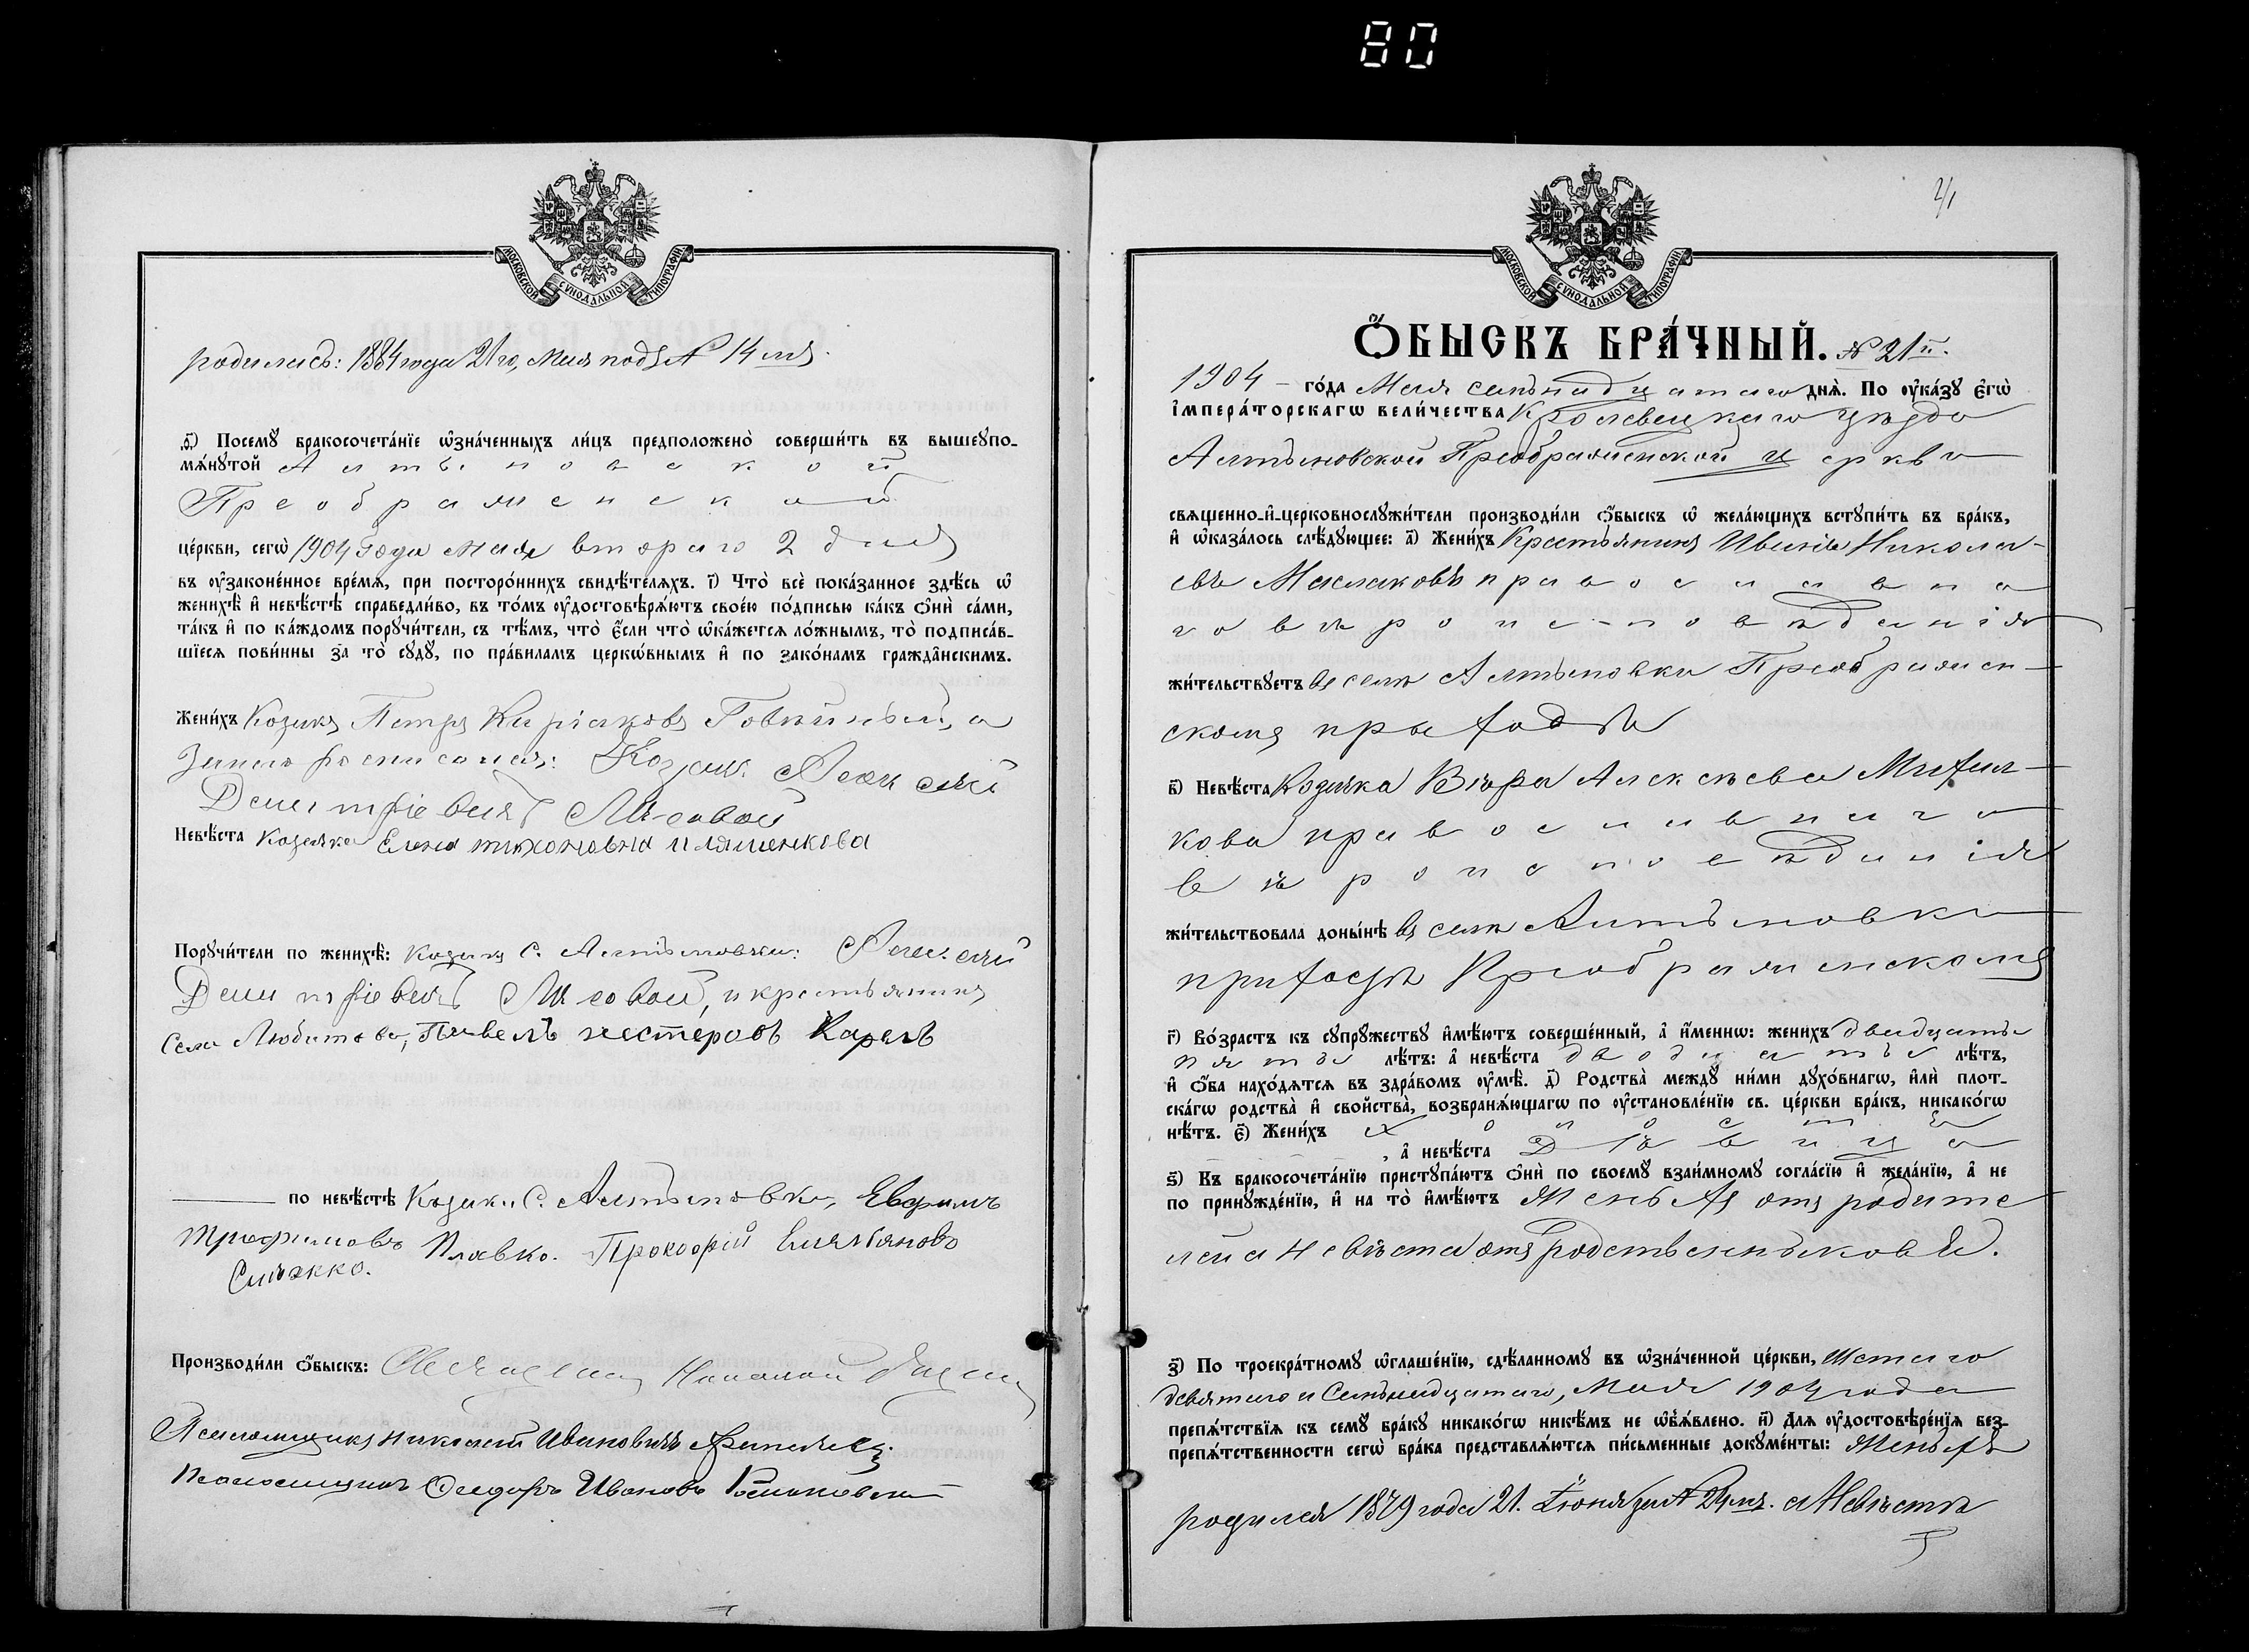 80
МОСКОВСКОЙ СУНОДАЛЬНОЙ ТИПОГРАФІИ
родилась: 1884 года 21го, Мая подъ № 14 мъ.
ѳ҃) Посемꙋ̀ бракосочета́нїе ѡ҆зна́ченныхъ ли́цъ предположено̀ соверши́ть въ вышеупо-
мѧ́нꙋтой Алтыновской
Преображенской
це́ркви, сегѡ̀ 1904 года Мая второго 2 дня
въ ᲂу҆законе́нное вре́мѧ, при посторо́ннихъ свидѣ́телѧхъ. і҃) Что̀ всѐ пока́занное здѣ́сь ѡ҆
женихѣ̀ и҆ невѣ́стѣ справедли́во, въ то́мъ ᲂу҆достовѣрѧ́ютъ свое́ю по́дписью ка́къ ѻ҆нѝ са́ми,
та́къ и҆ по ка́ждомъ порꙋчи́тели, съ тѣ́мъ, что̀ є҆́сли что̀ ѡ҆ка́жетсѧ ло́жнымъ, то̀ подписа́в-
шїесѧ пови́нны за то̀ сꙋдꙋ̀, по пра́виламъ церкѡ́внымъ и҆ по зако́намъ гражда̑нскимъ.
Жени́хъ Козакъ Петръ Киріаковъ а
росписался: Козак Алексѣй
Невѣ́ста Козачка Елена тихоновна
Порꙋчи́тели по женихѣ̀: Козакъ С. Алтыновки: Алексѣй
и крестьянинъ
Села Любитова, Павелъ нестеровъ Каревъ
по невѣ́стѣ Козаки С. Алтыновки, Евфимъ
Трофимовъ Плавко. Прокофій Емельяновъ
Симакко.
Производи́ли ѻ҆́быскъ: Священникъ Николай
Псаломщикъ Николай Ивановичъ
Псаломщикъ Ѳеодоръ Ивановъ
21
МОСКОВСКОЙ СУНОДАЛЬНОЙ ТИПОГРАФІИ
Ѻ҆́БЫСКЪ БРА́ЧНЫЙ. № 21й.
1904 го́да Мая семьнадцатаго днѧ̀. По ᲂу҆ка́зꙋ є҆гѡ̀
і҆мпера́торскагѡ вели́чества Кролевецкаго уѣзда
Алтыновской Преображенской церкви
свѧщенно-и҆-церковнослꙋжи́тели производи́ли ѻ҆́быскъ ѡ҆ жела́ющихъ встꙋпи́ть въ бра́къ,
и҆ ѡ҆каза́лось слѣ́дꙋющее: а҃) Жени́хъ Крестьянинъ Иванъ Никола-
евъ Маслаковъ православна
го вѣроис-повѣданія
жи́тельствꙋетъ въ селѣ Алтыновки Преображен-
скомъ приходѣ
в҃) Невѣ́ста Козачка Вѣра Алексѣева Михай-
кова православнаго
вѣроисповѣданія
жи́тельствовала доны́нѣ въ селѣ Алтыновки
приходѣ Преображенскомъ
г҃) Во́зрастъ къ сꙋпрꙋ́жествꙋ и҆мѣ́ютъ соверше́нный, а҆ и҆́меннѡ: жени́хъ двадцать
пять лѣ́тъ: а҆ невѣ́ста двадцать лѣ́тъ,
и҆ ѻ҆́ба нахо́дѧтсѧ въ здра́вомъ ᲂу҆мѣ̀. д҃) Родства̀ междꙋ̀ ни́ми дꙋхо́внагѡ, и҆лѝ плот-
ска́гѡ родства̀ и҆ свойства̀, возбранѧ́ющагѡ по ᲂу҆становле́нїю св. це́ркви бра́къ, никако́гѡ
нѣ́тъ. є҃) Жени́хъ холостъ
, а҆ невѣ́ста Дѣвица
ѕ҃) Къ бракосочета́нїю пристꙋпа́ютъ ѻ҆нѝ по своемꙋ̀ взаи́мномꙋ согла́сїю и҆ жела́нїю, а҆ не
по принꙋжде́нїю, и҆ на то̀ и҆мѣ́ютъ Женихъ отъ родите
лей а Невѣста отъ родственныковъ.
з҃) По троекра́тномꙋ ѡ҆глаше́нїю, сдѣ́ланномꙋ въ ѡ҆зна́ченной це́ркви,
девятаго и Семьнадцатаго, Мая 1904 года
препѧ́тствїѧ къ семꙋ̀ бра́кꙋ никако́гѡ никѣ́мъ не ѡ҆б̾ѧ́влено. и҃) Длѧ ᲂу҆достовѣре́нїѧ без-
препѧ́тственности сегѡ̀ бра́ка представлѧ́ютсѧ пи́сьменные докꙋме́нты: Женихъ
родился 1879 года 21. Іюня за № 24мъ. а Невѣста